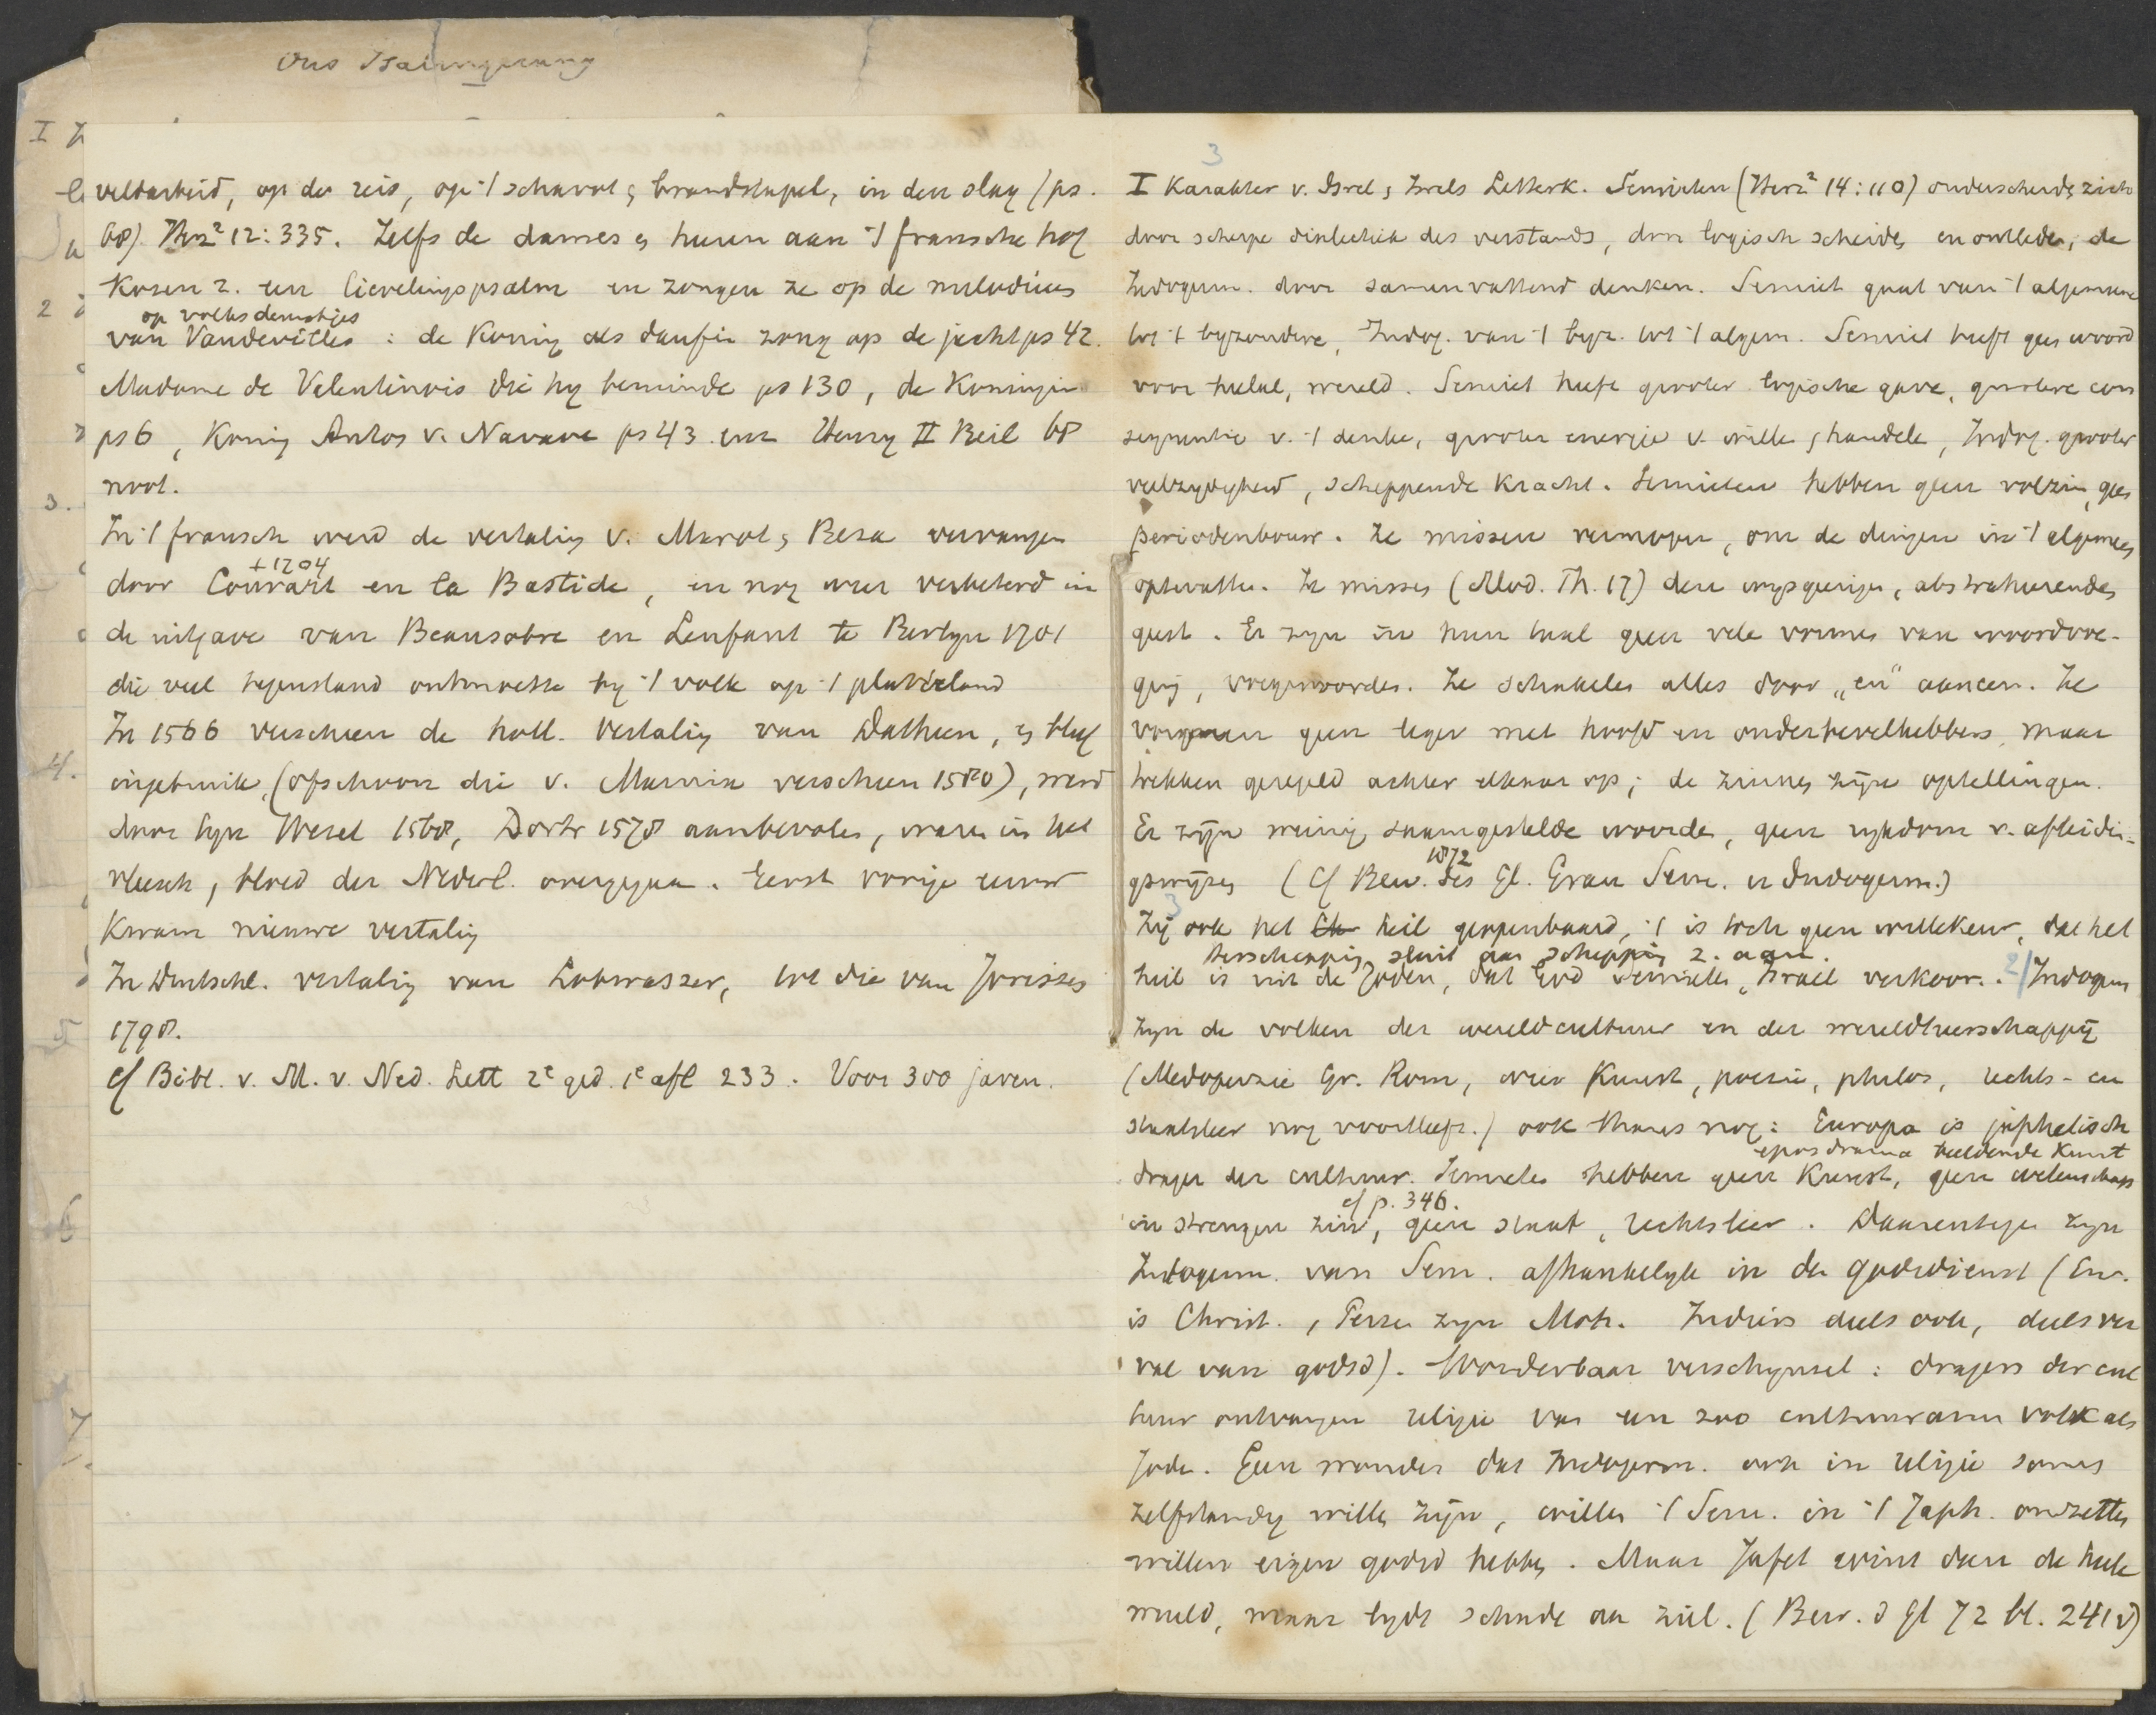 veldarbeid, op de reis, op 't schavot & brandstapel, in den slag (ps.
68). Herz² 12:335. Zelfs de dames & heeren aan 't fransche hof
kozen z. een lievelingspsalm en zongen ze op de melodieen
op volksdeuntjes
van Vaudevilles : de Koning als daufin zong op de jacht ps 42.
Madame de Valentinois die hy beminde ps 130, de Koningin
ps 6, Koning Anton v. Navarre ps 43 enz Henry II Beil 68
noot.
In 't fransch werd de vertaling v. Marot & Beza vervangen
+1704
door Conrart en la Bastide, en nog weer verbeterd in
de uitgave van Beausobre en Lenfant te Berlyn 1701
die veel tegenstand ontmoette by 't volk op 't platteland
In 1566 verscheen de holl. vertaling van Datheen, & bleef
ingebruik, (ofschoon die v. Marnix verscheen 1580), werd
door syn Wesel 1568, Dordr 1578 aanbevolen, ware in het
vleesch & bloed der Nederl. overgegaan. Eerst vorige eeuw
kwam nieuwe vertaling
In Duitschl. vertaling van Lobwasser, tot die van Jorissen
1798.
cf Bibl. v. M. v. Ned. Lett 2e ged. 1e afl 233. Voor 300 jaren.
I Karakter v. Isrel & Isrels Letterk. Semieten (Herz² 14:110) onderscheiden zich
door scherpe dialectiek des verstands, door logisch scheiden en ontleden, de
Indogerm. door samenvattend denken. Semiet gaat van 't algemeene
tot 't byzondere, Indog. van 't byz. tot 't algem. Semiet heeft geen woord
voor heelal, wereld. Semiet heeft grooter logische gave, grootere con
sequentie v. 't denken, grooter energie v. willen & handelen, Indog. grooter
veelzydigheid, scheppende kracht. Semieten hebben geen volzin, geen
periodenbouw. Ze missen vermogen, om de dingen in 't algemeen
optevatten. Ze missen (Mod. Th. 17) den wysgeerigen, abstraheerenden
geest. Er zyn in hun taal geen vele vormen van woordvoe-
ging, voegwoorden. Ze schakelen alles door „en" aaneen. Ze
vormen geen leger met hoofd en onderbevelhebbers, maar
trekken geregeld achter elkaar op; de zinnen zijn optellingen.
Er zijn weinig saamgestelde woorden, geen rykdom v. afleidin-
1872
gswyzen (cf Bew. des Gl. Grau Sem. u Indogerm.)
3
Zij ook het heil geopenbaard, 't is toch geen willekeur, dat het
herschepping sluit aan schepping z. aan.
heil is uit de Joden, dat God Semieten, Israel verkoor. 2/ Indogerm
zyn de volken der wereldcultuur en der wereldheerschappij
(Medoperzie Gr. Rom, wier Kunst, poezie, philos, rechts- en
staatsleer nog voortleeft.) ook thans nog: Europa is japhetisch
epos drama beeldende Kunst
drager der cultuur. Semieten hebben geen Kunst, geen wetenschap
cf p. 346.
in strengen zin, geen staat, rechtsleer. Daarentegen zyn
Indogerm. van Sem. afhankelyk in de godsdienst (Eur.
is Christ., Perzen zyn Moh. Indiërs deels ook, deels ver
val van godsd). Wonderbaar verschynsel: dragers der cul
tuur ontvangen religie van een zoo cultuurarm volk als
Joden. Geen wonder dat Indogerm. ook in religie soms
zelfstandig willen zijn, willen 't Sem. in 't Japh. omzetten
willen eigen godsd hebben. Maar Jafet wint dan de heele
wereld, maar lydt schade aan ziel. (Bew. d Gl 72 bl. 241 v)